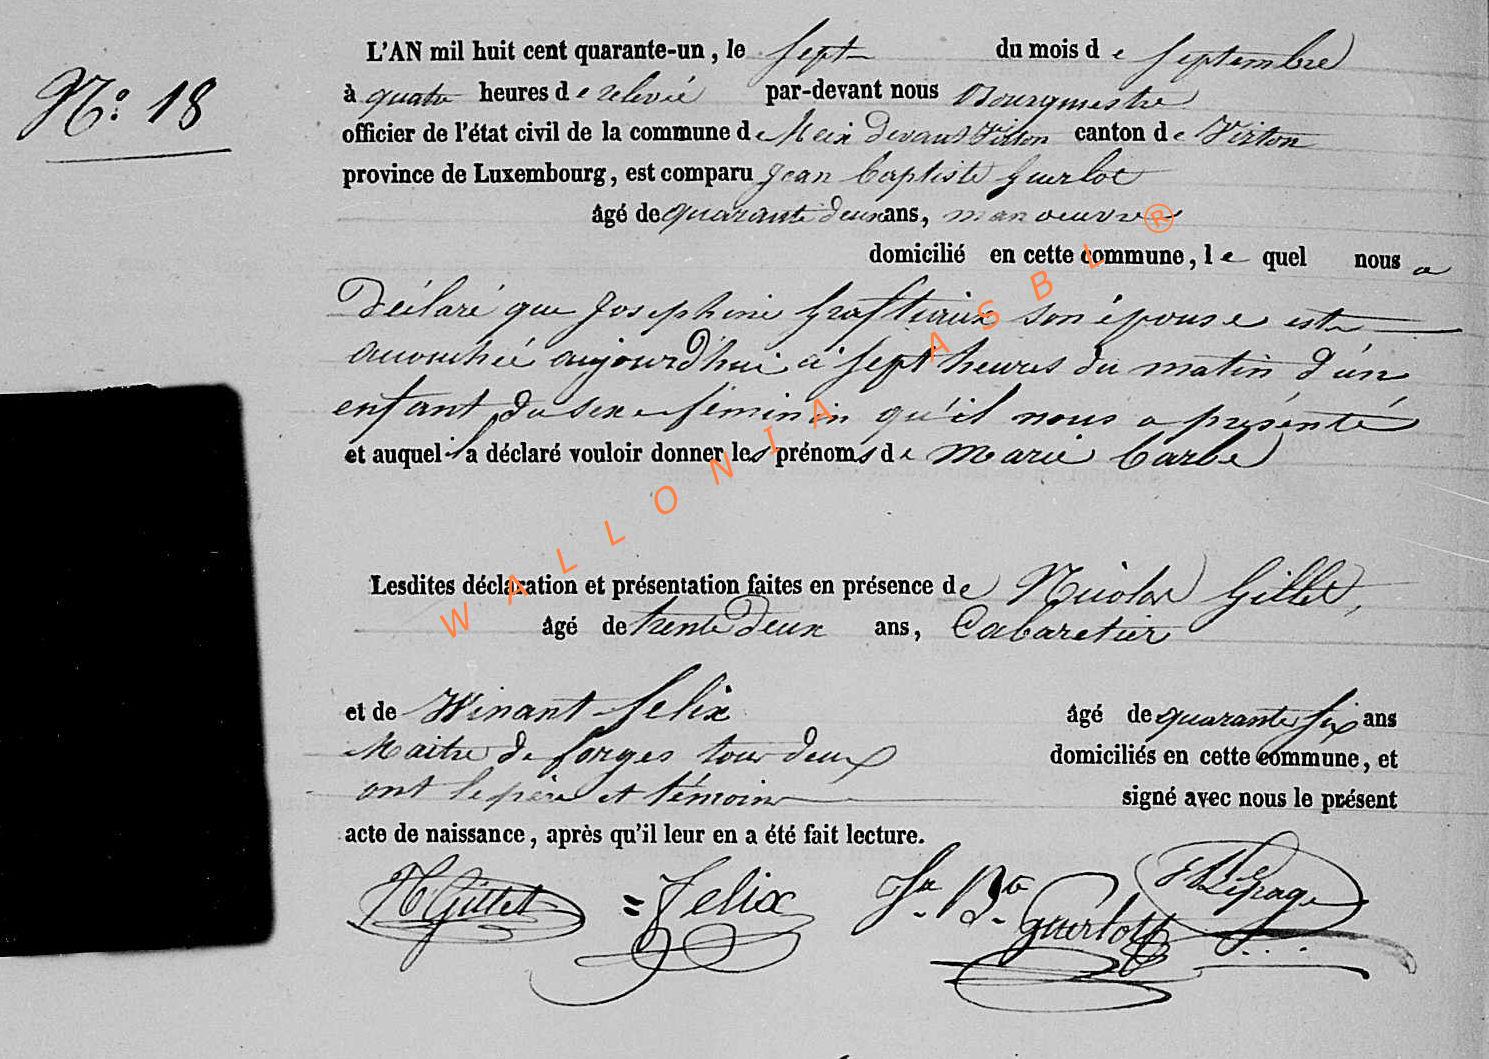 N.o 18
L'AN mil huit cent quarante-un, le sept du mois de Septembre
à quatre heures de relevée par-devant nous Bourgmestre
officier de l'état civil de la commune de Meix Devant Virton canton de Virton
province de Luxembourg, est comparu Jean Baptiste Guerlot
âgé de quarante deux ans, manoeuvre
domicilié en cette commune, le quel nous a
Déclaré que Josephine Graftiaux son épouse est
accouchée aujourd'hui à sept heures du matin d'un
enfant du sexe féminin qu'il nous a présenté
et auquel il a déclaré vouloir donner les prénoms de Marie Barbe
Lesdites déclaration et présentation faites en présence de Nicolas Gillet,
âgé de trente Deux ans, Cabaretier
et de Winant Felix âgé de quarante six ans
Maitre de forges tous deux domiciliés en cette commune, et
ont le père et témoins signé avec nous le présent
acte de naissance, après qu'il leur en a été fait lecture.
N Gillet Felix Jn Bte Guerlot Lepage
WALLONIA ASBL ®